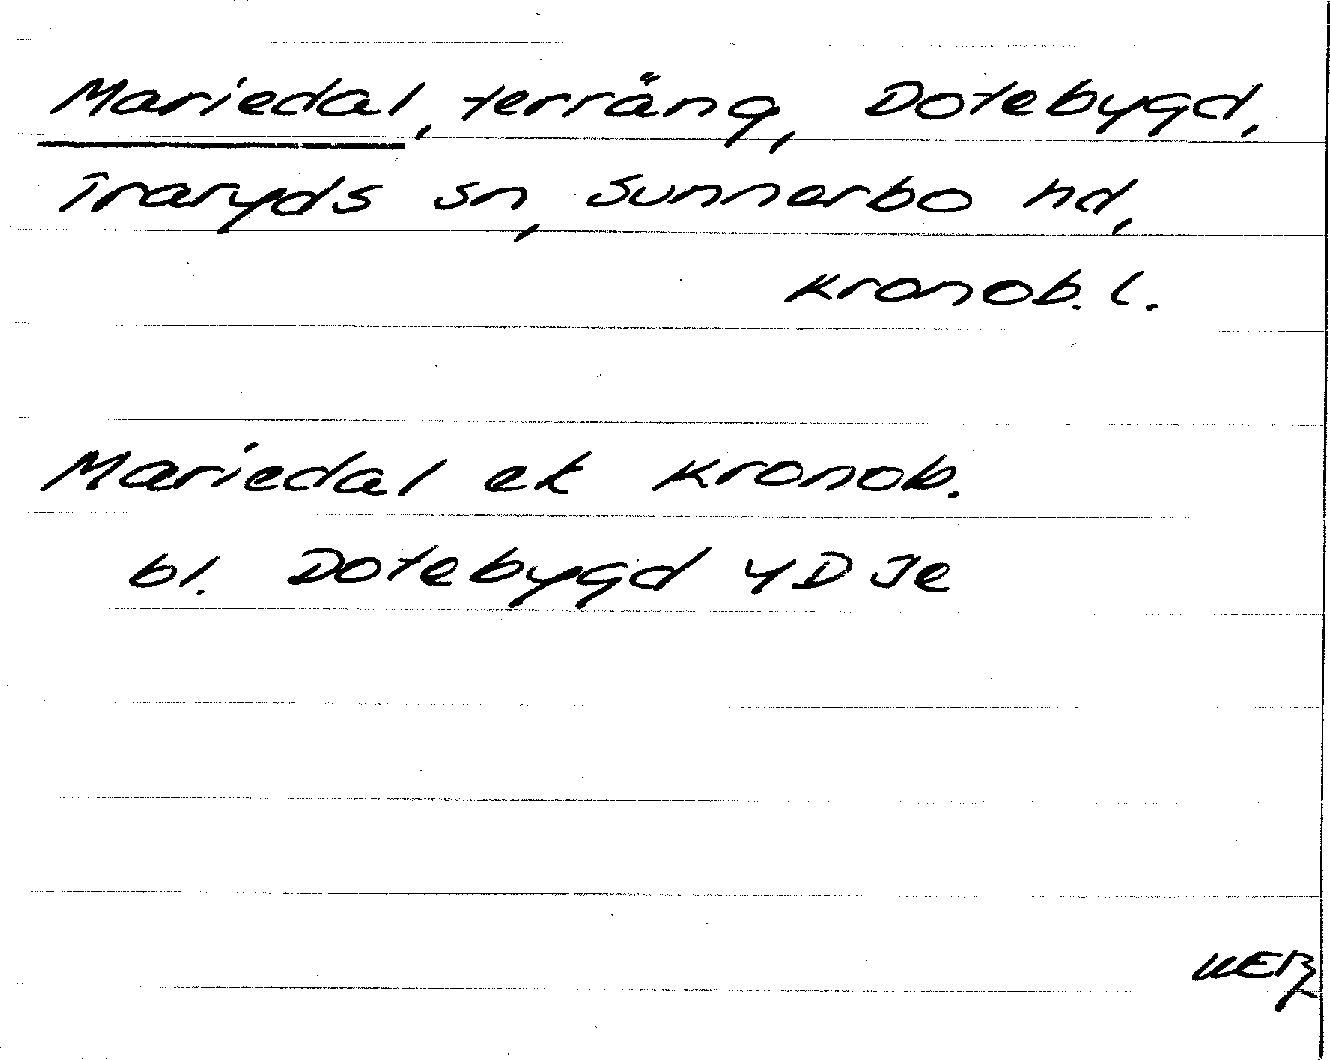 Mariedal, terräng, Dotebygd,
Traryds sn, Sunnerbo hd,
Kronob. l.
Mariedal ek Kronob.
bl. Dotebygd 4D Je